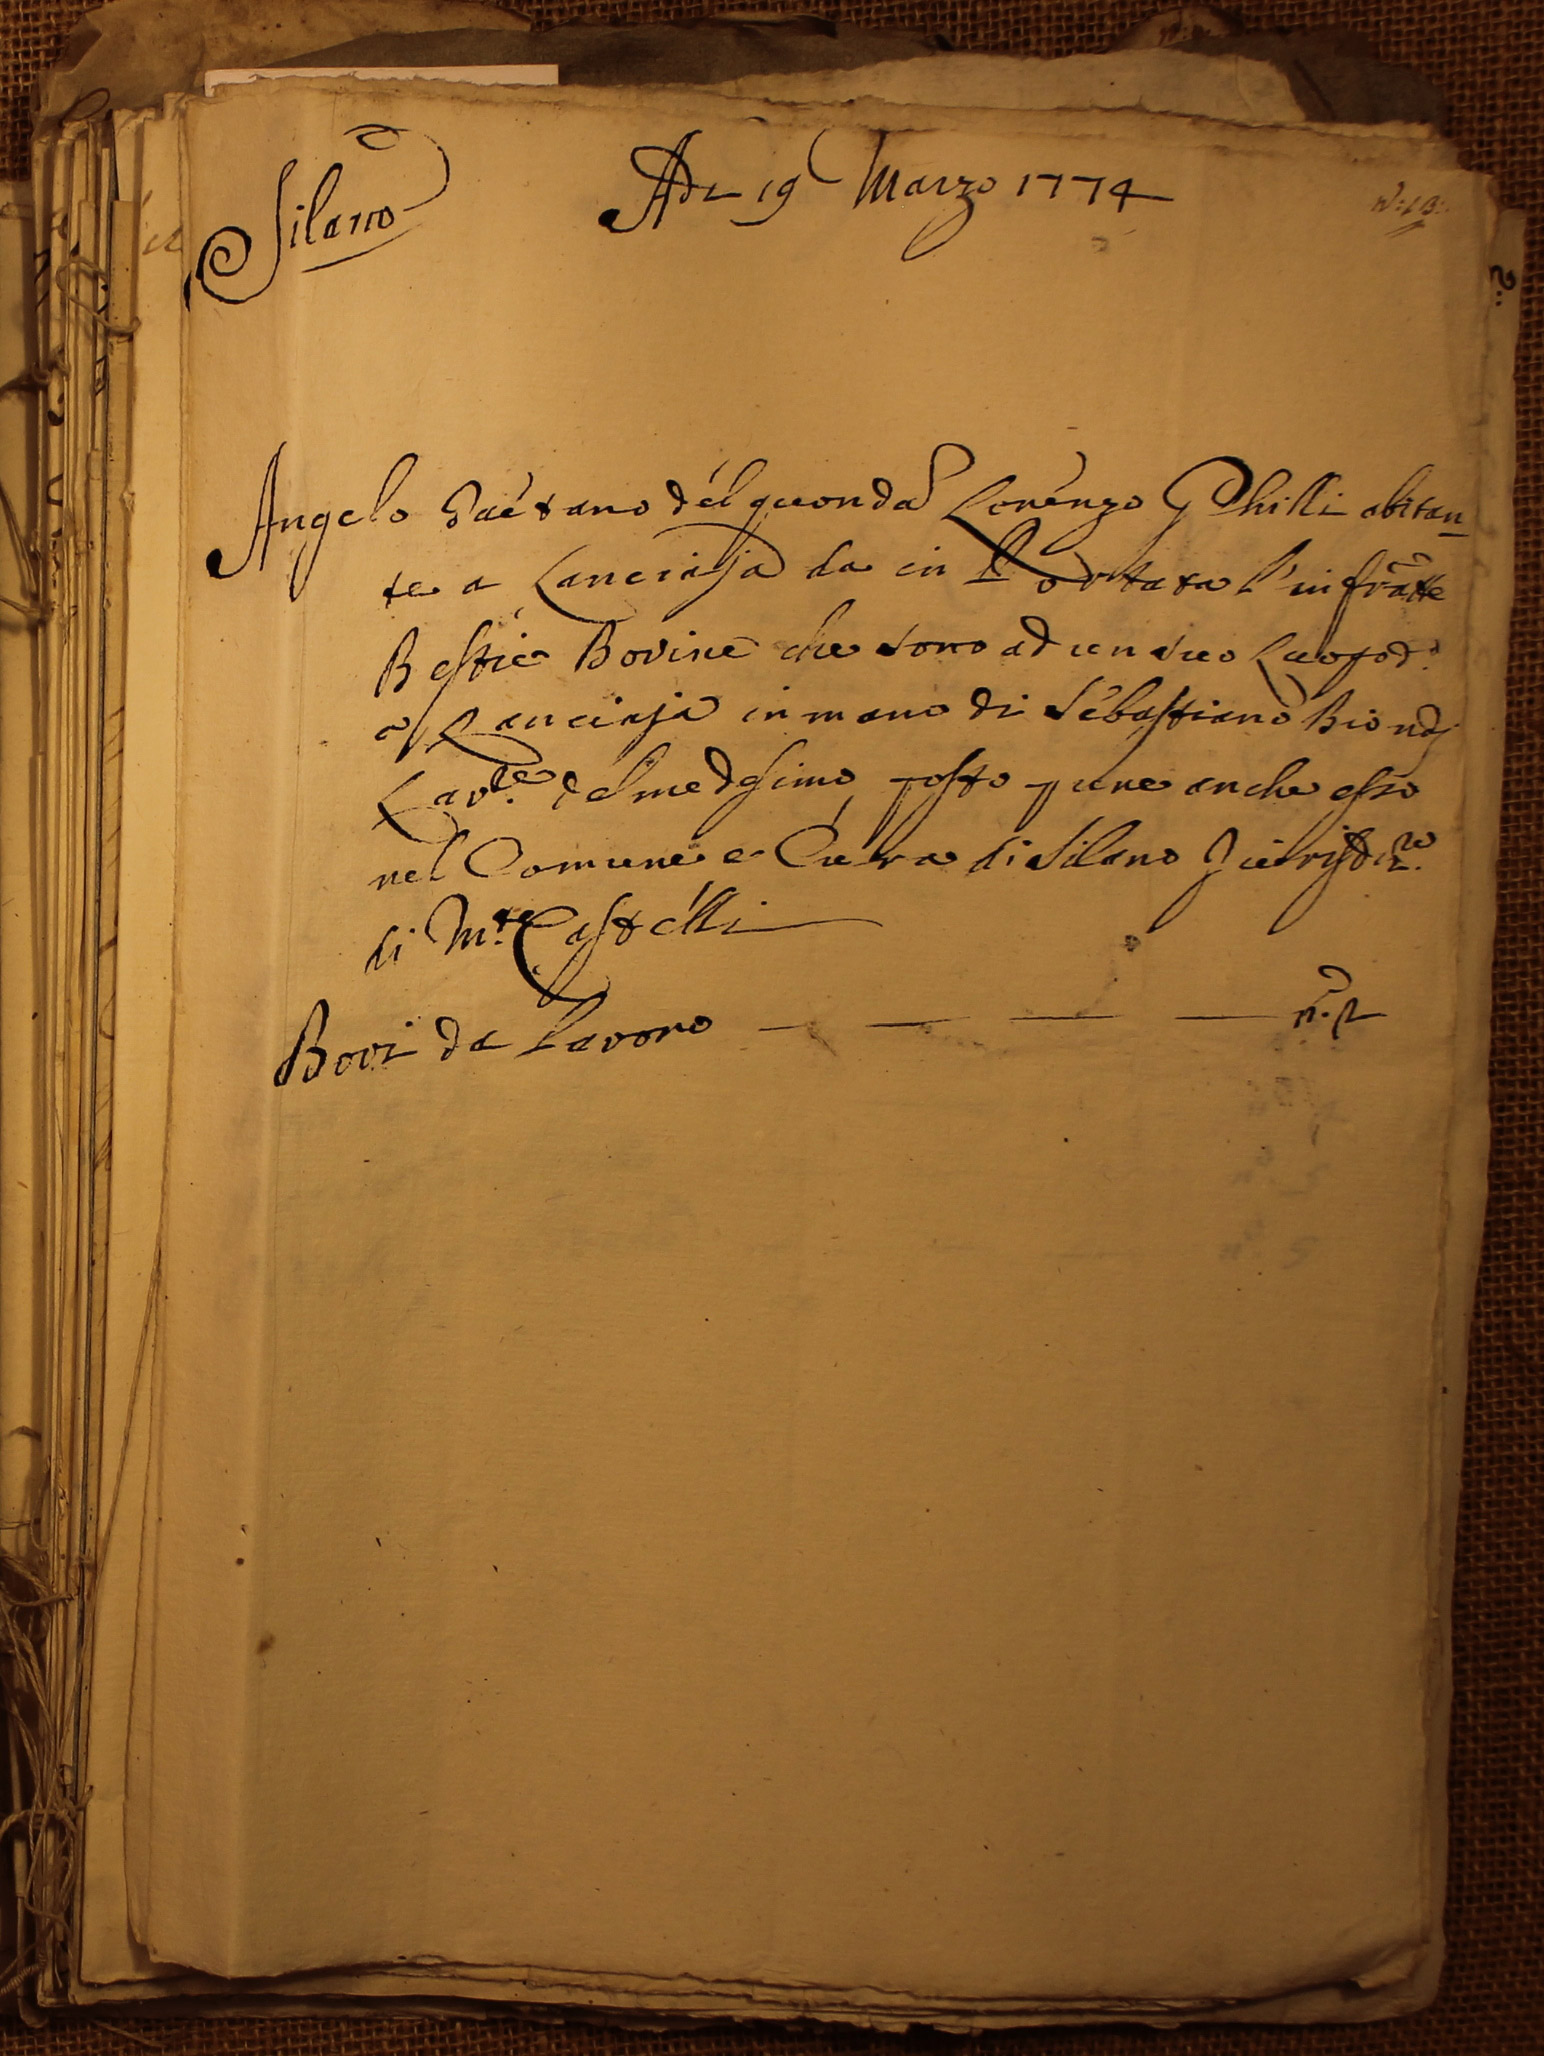 Silano
Adi 19 Marzo 1774
N:13:
Angelo Gaetano del quonda Lorenzo Ghilli abitan
te a Lanciaja da in Portata l'infratte
Bestie Bovine che sono ad un suo Luogo d.º
a Lanciaja in mano di Sebastiano Biondi
Lav.re del medesimo posto pure anche esso
nel Comune e Cura di Silano Giurisdiz.ne
di M.te Castelli
Bovi da Lavoro — — — — n.º 2